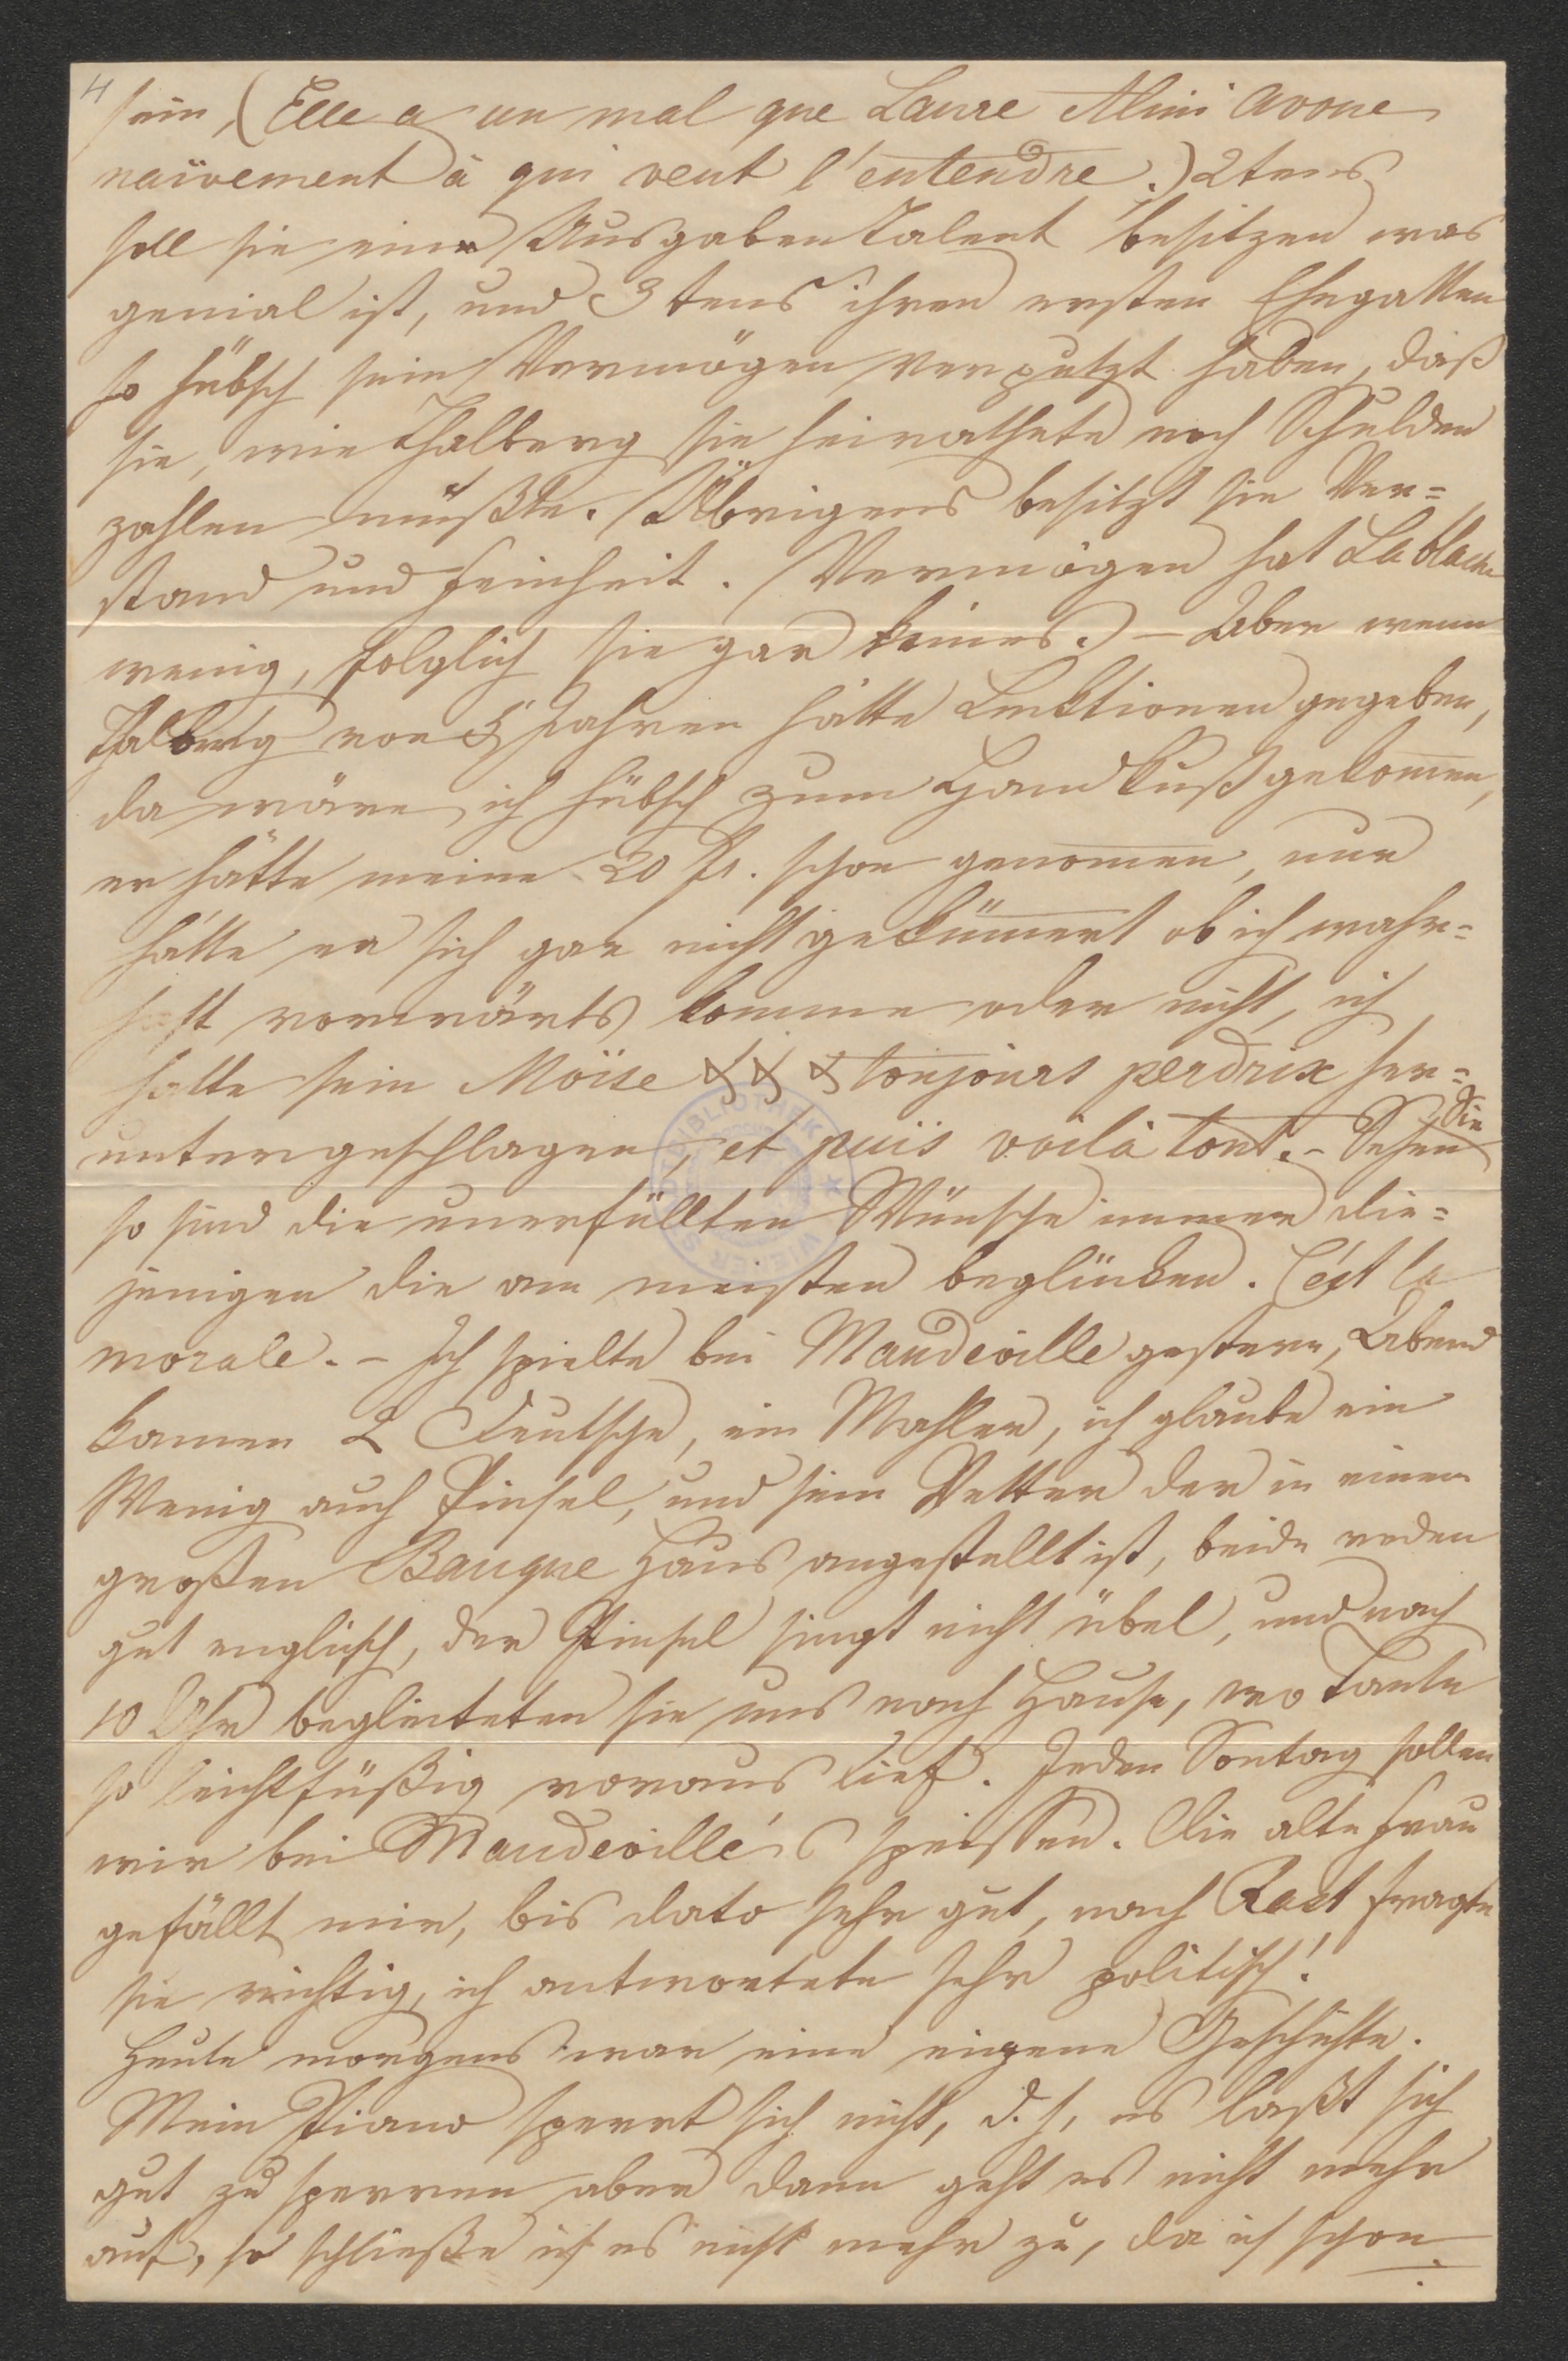 4
sein, (Elle a un mal que Laure Mini avoue
naïvement à qui veut l'entendre.) 2tens
soll sie eine Ausgaben Talent besitzen was
genial ist, und 3tens ihren ersten Ehegatten
so hübsch sein Vermögen verputzt haben, daß
sie, wie Thalberg sie heirathete noch Schulden
zahlen mußte. Übrigens besitzt sie Ver=
stand und Feinheit. Vermögen hat Lablache
wenig, folglich sie gar keines. – Aber wenn
Thalberg vor 5 Jahren hätte Lecktionen gegeben,
da wäre ich hübsch zum Handkuß gekom̄en,
er hätte meine 20 fr. schon genom̄en, nur
hätte er sich gar nicht geküm̄ert ob ich wahr=
haft vorwärts komme oder nicht, ich
hätte sein Moïse & & & toujours perdrix her=
untergeschlagen, et puis voilà tout. – Sehen Sie
so sind die unerfüllten Wünsche immer die=
jenigen die am meisten beglücken. C'ést la
morale. – Ich spielte bei Mandeville gestern, Abend
kamen 2 Deutsche, ein Mahler, ich glaube ein
Wenig auch Pinsel, und sein Vetter der in einem
großen Banque Haus angestellt ist, beide reden
gut englisch, der Pinsel singt nicht übel, und nach
10 Uhr begleiteten sie uns nach Hause, wo Tante
so leichtfüßig voraus lief. Jeden Sontag sollen
wir bei Mandeville's speissen. Die alte Frau
gefällt mir, bis dato sehr gut, nach Ract fragte
sie richtig, ich antwortete sehr politisch!
Heute morgens war eine eigene Geschichte.
Mein Piano sperrt sich nicht, d. h. es laßt sich
gut zu sperren aber dann geht es nicht mehr
auf, so schließe ich es nicht mehr zu, da ich schon